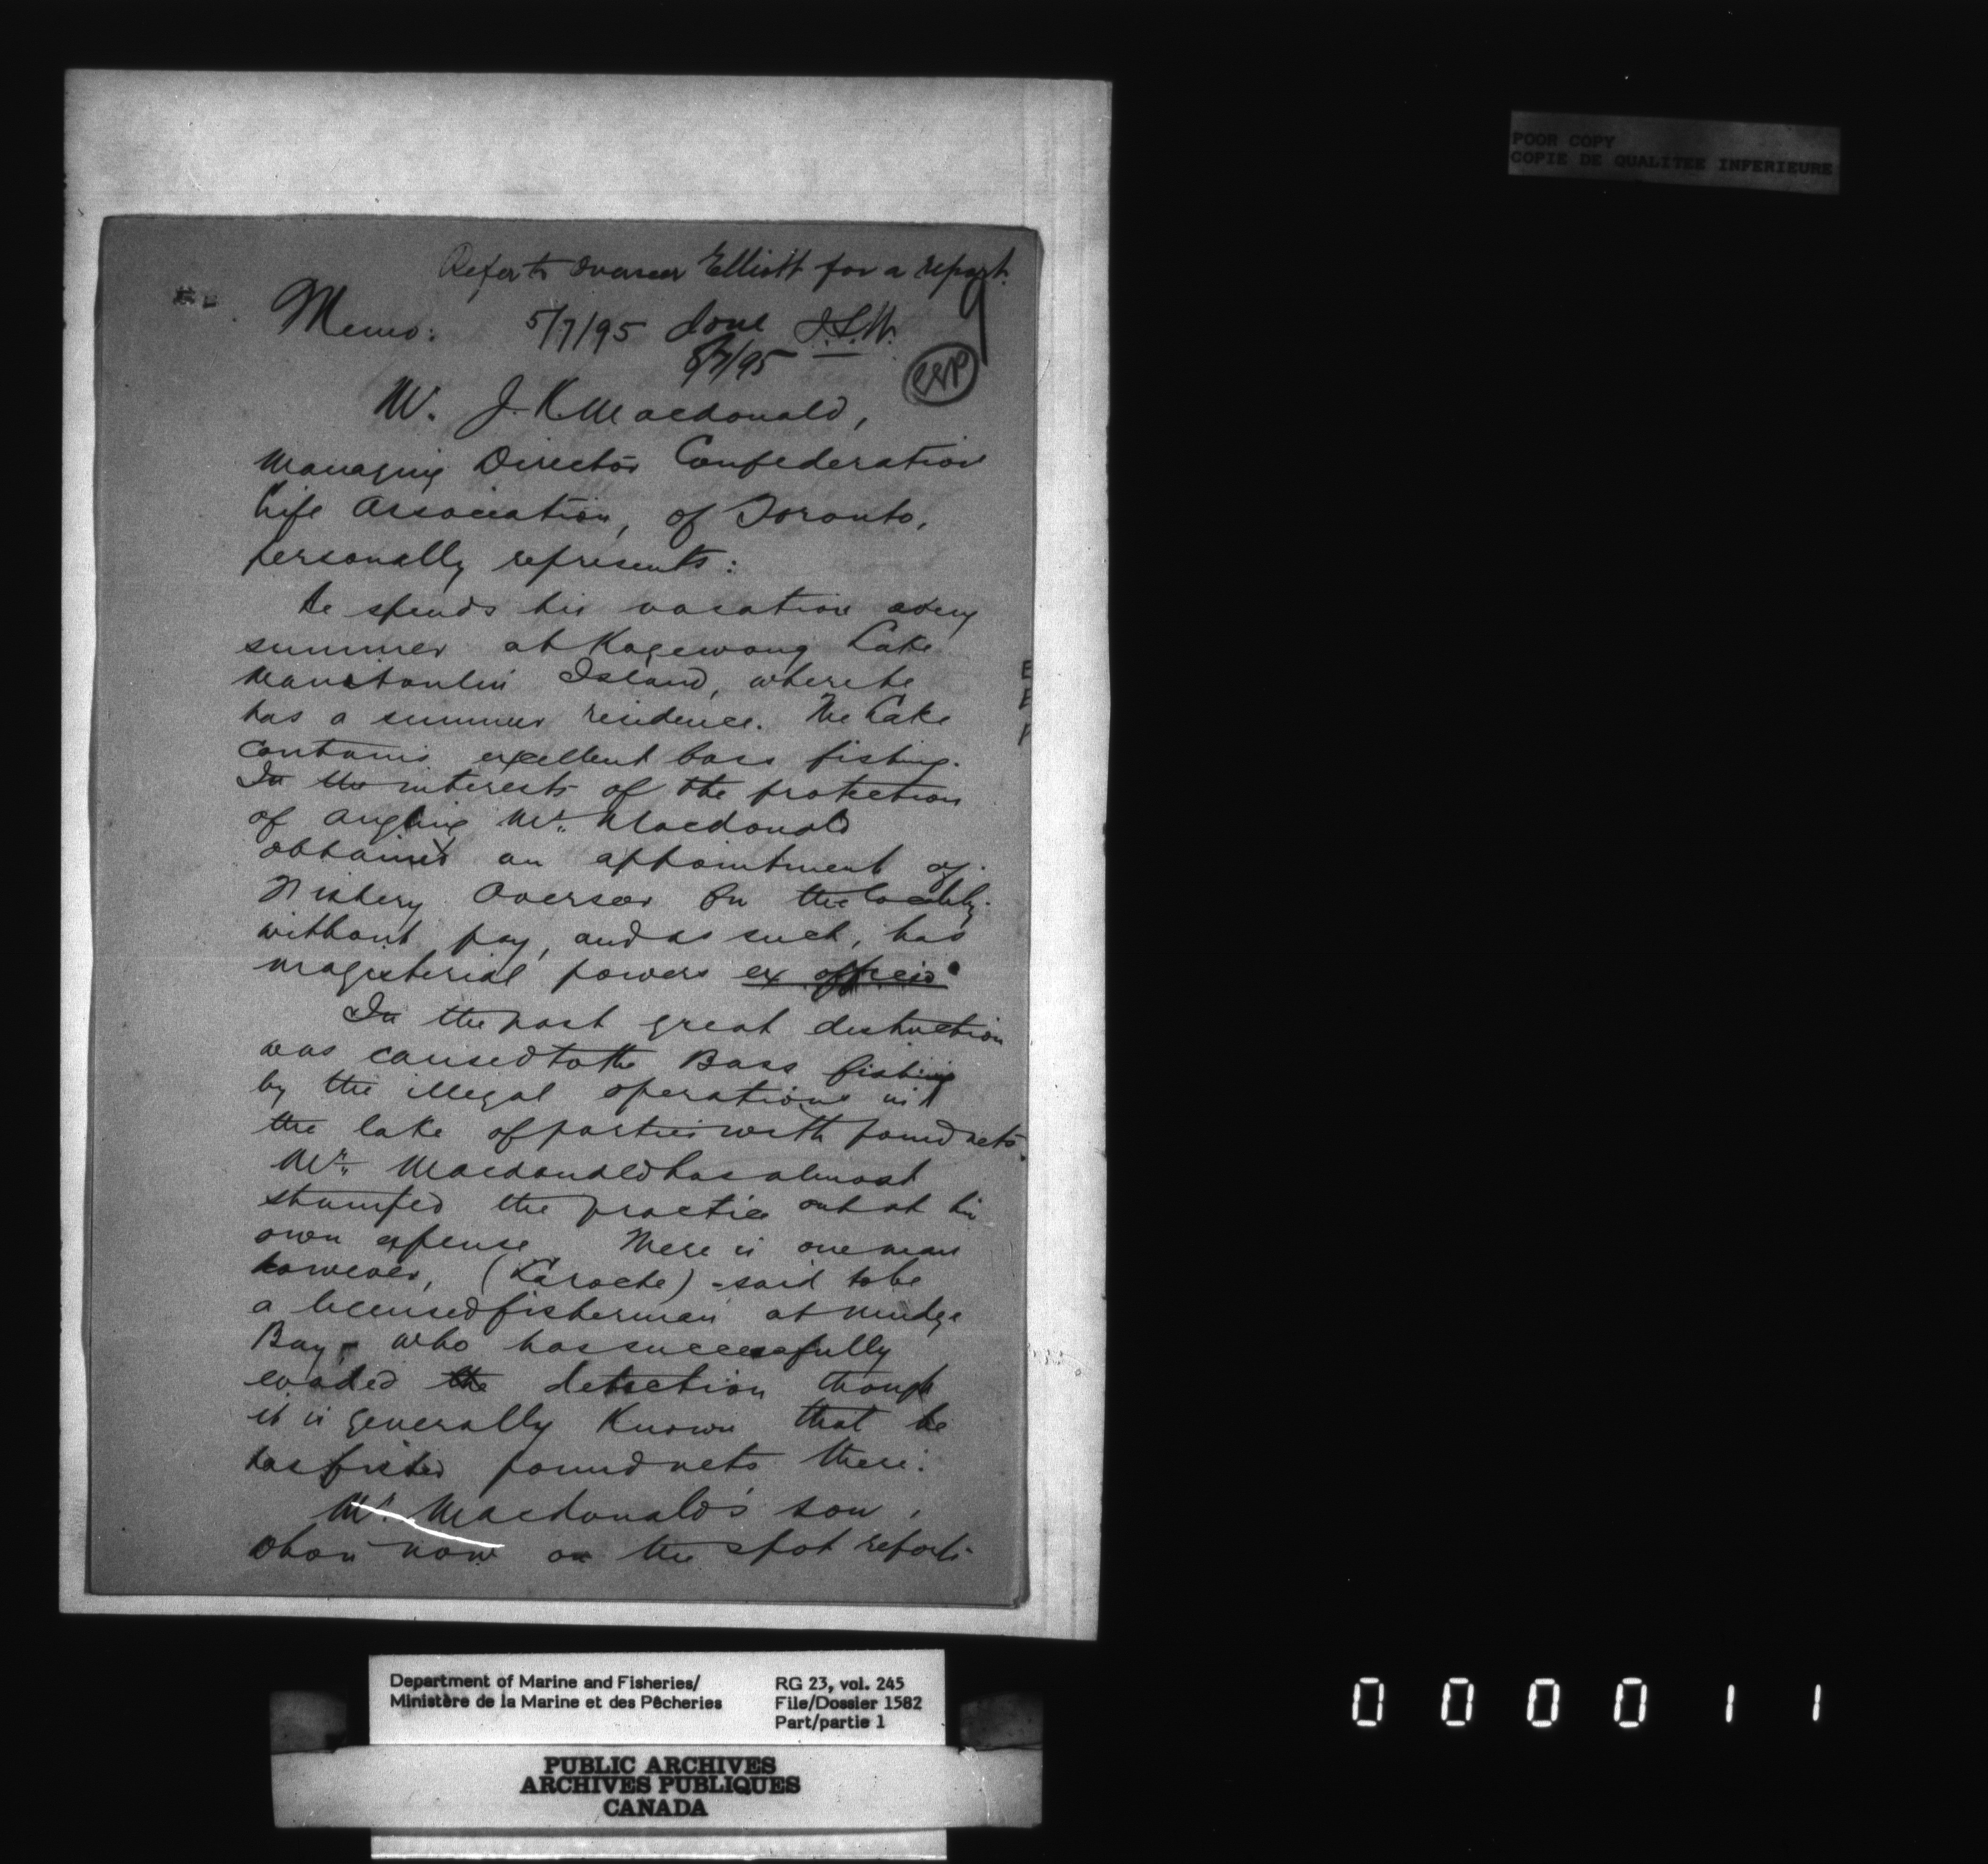 POOR COPY
COPIE DE QUALITEE INFERIEURE
Refer to Overseer Elliott for a report.
Memo: 5/7/95 done J.S.W.
8/7/95
Mr. J. K. Macdonald,
Managing Director Confederation
Life Association, of Toronto,
personally represents:
He spends his vacation every
summer at Kagewong Lake
Manitoulin Island, where he
has a summer residence. The Lake
contains excellent bass fishing.
In the interests of the protection
of angling Mr. Macdonald
obtained an appointment of
Fishery Overseer for the locality
without pay, and as such, has
magisterial powers ex officio
In the past great destruction
was caused to the Bass fishing
by the illegal operations in
the lake of parties with pound nets.
Mr. Macdonald has almost
stamped the practice out at his
own expense. There is one man
however, (Laroche) - said to be
a licensed fisherman at Mudge
Bay, who has successfully
evaded the detection though
it is generally known that he
has fished pound nets there.
Mr. Macdonald's son,
who is now on the spot reports
Department of Marine and Fisheries/
Ministère de la Marine et des Pêcheries
RG 23, vol. 245
File/Dossier 1582
Part/partie 1
PUBLIC ARCHIVES
ARCHIVES PUBLIQUES
CANADA
000011